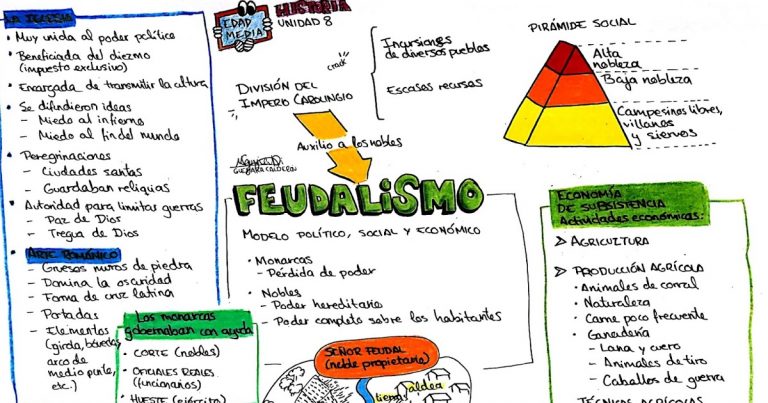 LA IGLESIA
• Muy unida al poder político
• Beneficiada del diezmo
(impuesto exclusivo)
• Encargada de transmitir la cultura
• Se difundieron ideas
– Miedo al infierno
– Miedo al fin del mundo
• Peregrinaciones
– Ciudades santas
– Guardaban reliquias
• Autoridad para limitar guerras
– Paz de Dios
– Tregua de Dios
• ARTE ROMÁNICO
– Gruesos muros de piedra
– Domina la oscuridad
– Forma de cruz latina
– Portadas
– Elementos
arco de
medio punto,
etc.)
Los monarcas
gobernaban con ayuda
• CORTE (nobles)
• OFICIALES REALES
(funcionarios)
• HUESTE (ejército)
EDAD
MEDIA
HISTORIA
UNIDAD 8
crack
DIVISIÓN DEL
IMPERIO CAROLINGIO
Incursiones
de diversos pueblos
Escasos recursos
Auxilio a los nobles
FEUDALISMO
MODELO POLÍTICO, SOCIAL Y ECONÓMICO
• Monarcas
– Pérdida de poder
• Nobles
– Poder hereditario
– Poder completo sobre los habitantes
SEÑOR FEUDAL
(noble propietario)
aldea
PIRÁMIDE SOCIAL
Alta
nobleza
Baja nobleza
Campesinos libres,
villanos
y siervos
ECONOMÍA
DE SUBSISTENCIA
Actividades económicas:
> AGRICULTURA
> PRODUCCIÓN AGRÍCOLA
• Animales de corral
• Naturaleza
• Carne poco frecuente
• Ganadería
– Lana y cuero
– Animales de tiro
– Caballos de guerra
TÉCNICAS AGRÍCOLAS